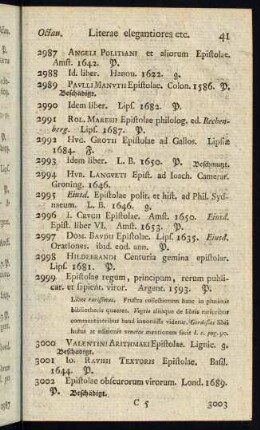 Octav. Literae elegantiores etc. 41
2987 ANGELI POLITIANI et aliorum Epistolae.
Amst. 1642. P.
2988 Id. liber. Hanov. 1622. g.
2989 PAVLLI MANVTII Epistolae. Colon. 1586. P.
Beschädigt.
2990 Idem liber. Lips. 1682. P.
2991 ROL. MARESII Epistolae philolog. ed. Rechen-
berg. Lips. 1687. P.
2992 HVG. GROTII Epistolae ad Gallos. Lipsiæ
1684. F.
2993 Idem liber. L. B. 1650. P. Beschmutzt.
2994 HVB. LANGVETI Epist. ad Ioach. Camerar.
Groning. 1646.
2995 Eiusd. Epistolae polit. et hist. ad Phil. Syd-
naeum. L. B. 1646. g.
2996 I. CEVCII Epistolae. Amst. 1650. Eiusd.
Epist. liber VI. Amst. 1653. P.
2997 DOM. BAVDII Epistolae. Lips. 1635. Eiusd.
Orationes. ibid. eod. ann. P.
2998 HILDEBRANDI Centuria gemina epistolar.
Lips. 1681. P.
2999 Epistolae regum, principum, rerum publi-
car. et sapient. viror. Argent. 1593. P.
Liber rarissimus. Frustra collectionem hanc in plurimis
bibliothecis quaeres. Vogtio aliisque de libris rarioribus
commentatoribus haud innotuisse videtur.
3000 VALENTINI ARITHMAEI Epistolae. Lignic. g.
Beschädigt.
3001 Io. RAVISII TEXTORIS Epistolae. Basil.
1644. P.
3002 Epistolae obscurorum virorum. Lond. 1689.
P. Beschädigt.
C 5 3003